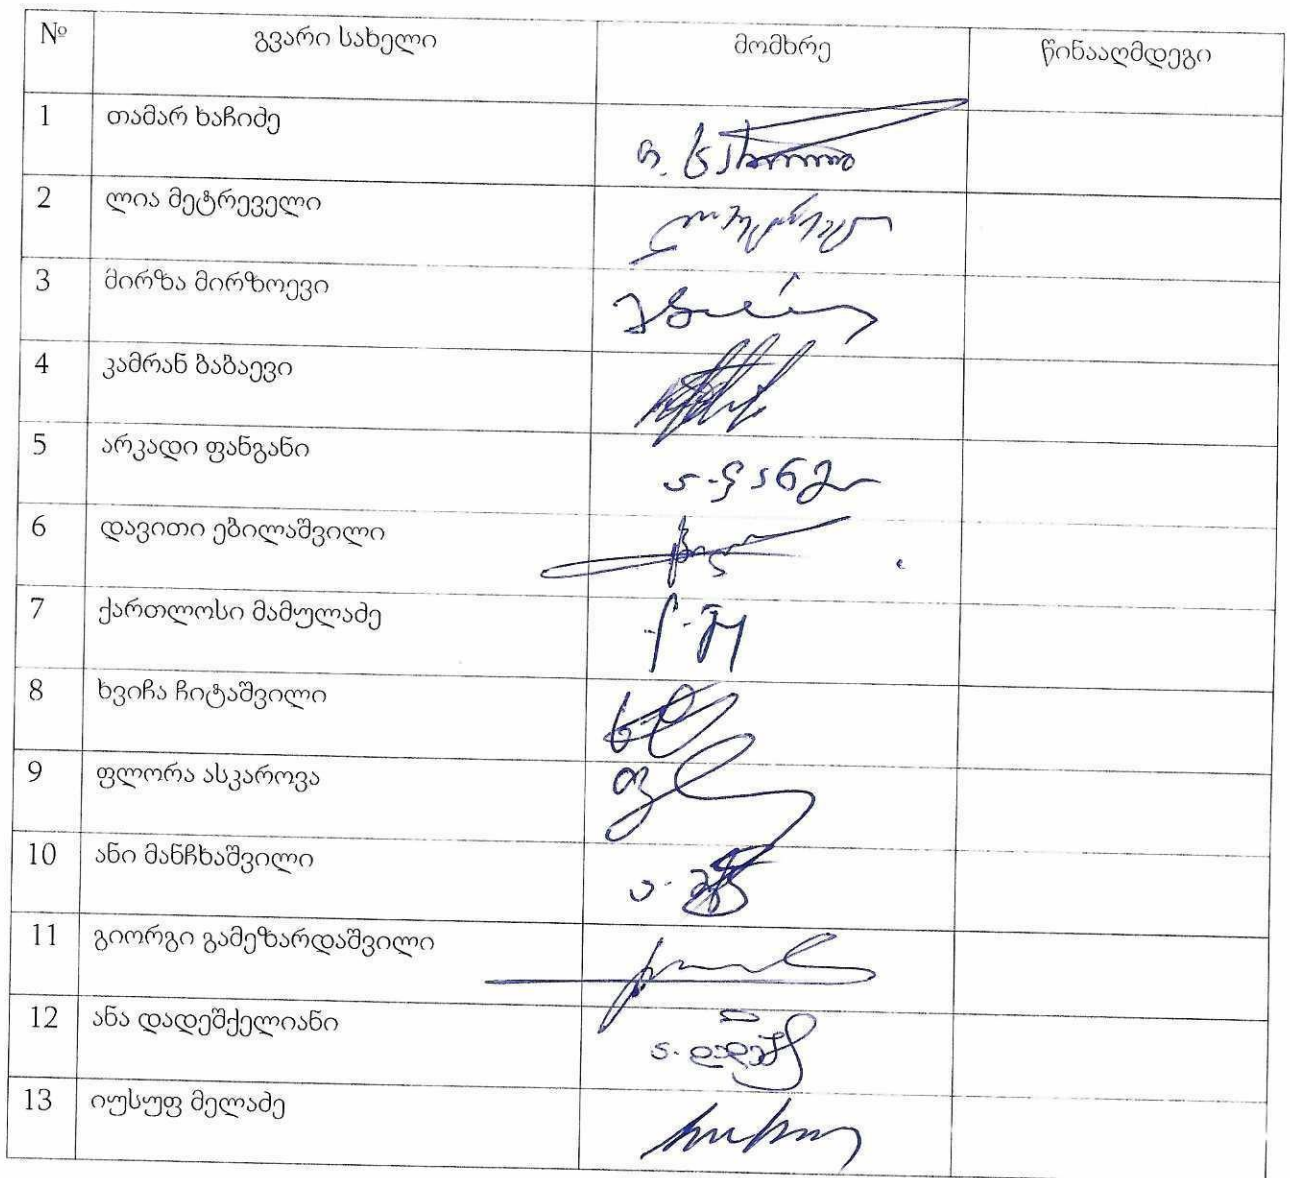 № გვარი სახელი მომხრე წინააღმდეგი
1 თამარ ხაჩიძე
2 ლია მეტრეველი
3 მირზა მირზოევი
4 კამრან ბაბაევი
5 არკადი ფანგანი
6 დავითი ებილაშვილი
7 ქართლოსი მამულაძე
8 ხვიჩა ჩიტაშვილი
9 ფლორა ასკაროვა
10 ანი მანჩხაშვილი
11 გიორგი გამეზარდაშვილი
12 ანა დადეშქელიანი
13 იუსუფ მელაძე